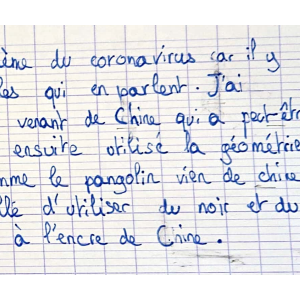 ème du coronavirus car il y
les qui en parlent. J'ai
venant de Chine qui a peut-êtr
ensuite utilisé la géométrie
mme le pangolin vien de chine
té d'utiliser du noir et du
à l'encre de Chine.